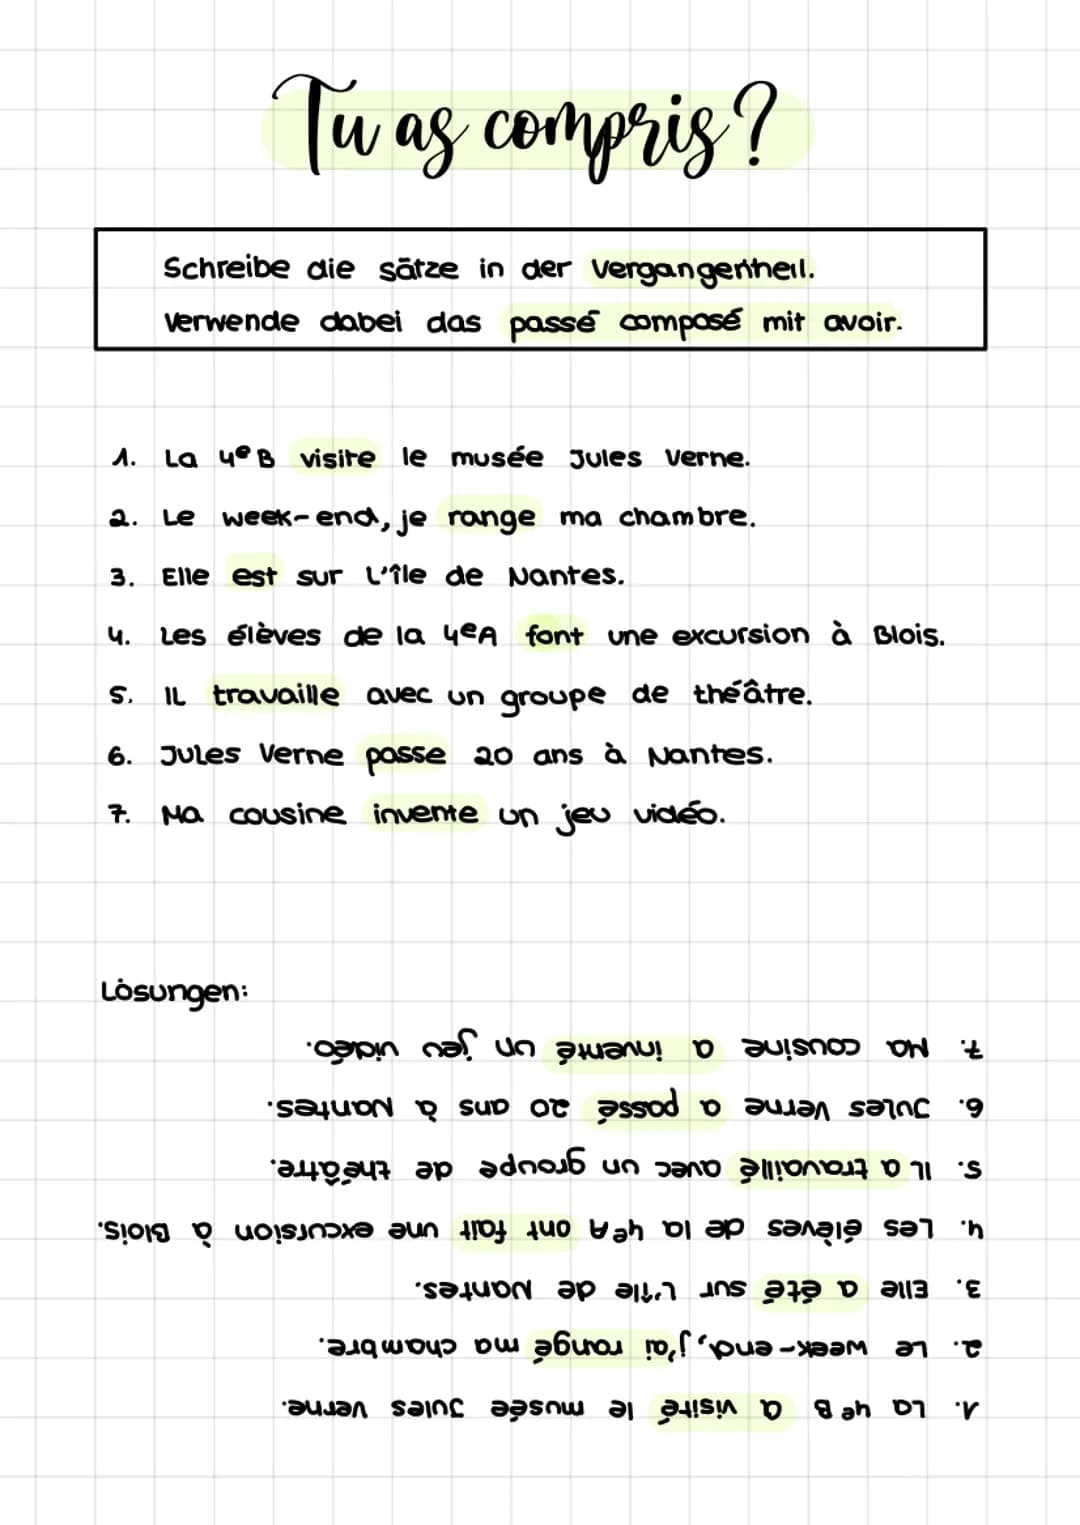 Tu as compris?
Schreibe die sätze in der Vergangenheit.
Verwende dabei das passé composé mit avoir.
1. La 4e B visite le musée Jules Verne.
2. Le week-end, je range ma chambre.
3. Elle est sur l'île de Nantes.
4. Les élèves de la 4eA font une excursion à Blois.
5. Il travaille avec un groupe de théâtre.
6. Jules Verne passe 20 ans à Nantes.
7. Ma cousine invente un jeu vidéo.
Lösungen:
7. Ma cousine a inventé un jeu vidéo.
6. Jules Verne a passé 20 ans à Nantes.
5. Il a travaillé avec un groupe de théâtre.
4. Les élèves de la 4eA ont fait une excursion à Blois.
3. Elle a été sur l'île de Nantes.
2. Le week-end, j'ai rangé ma chambre.
1. La 4e B a visité le musée Jules Verne.